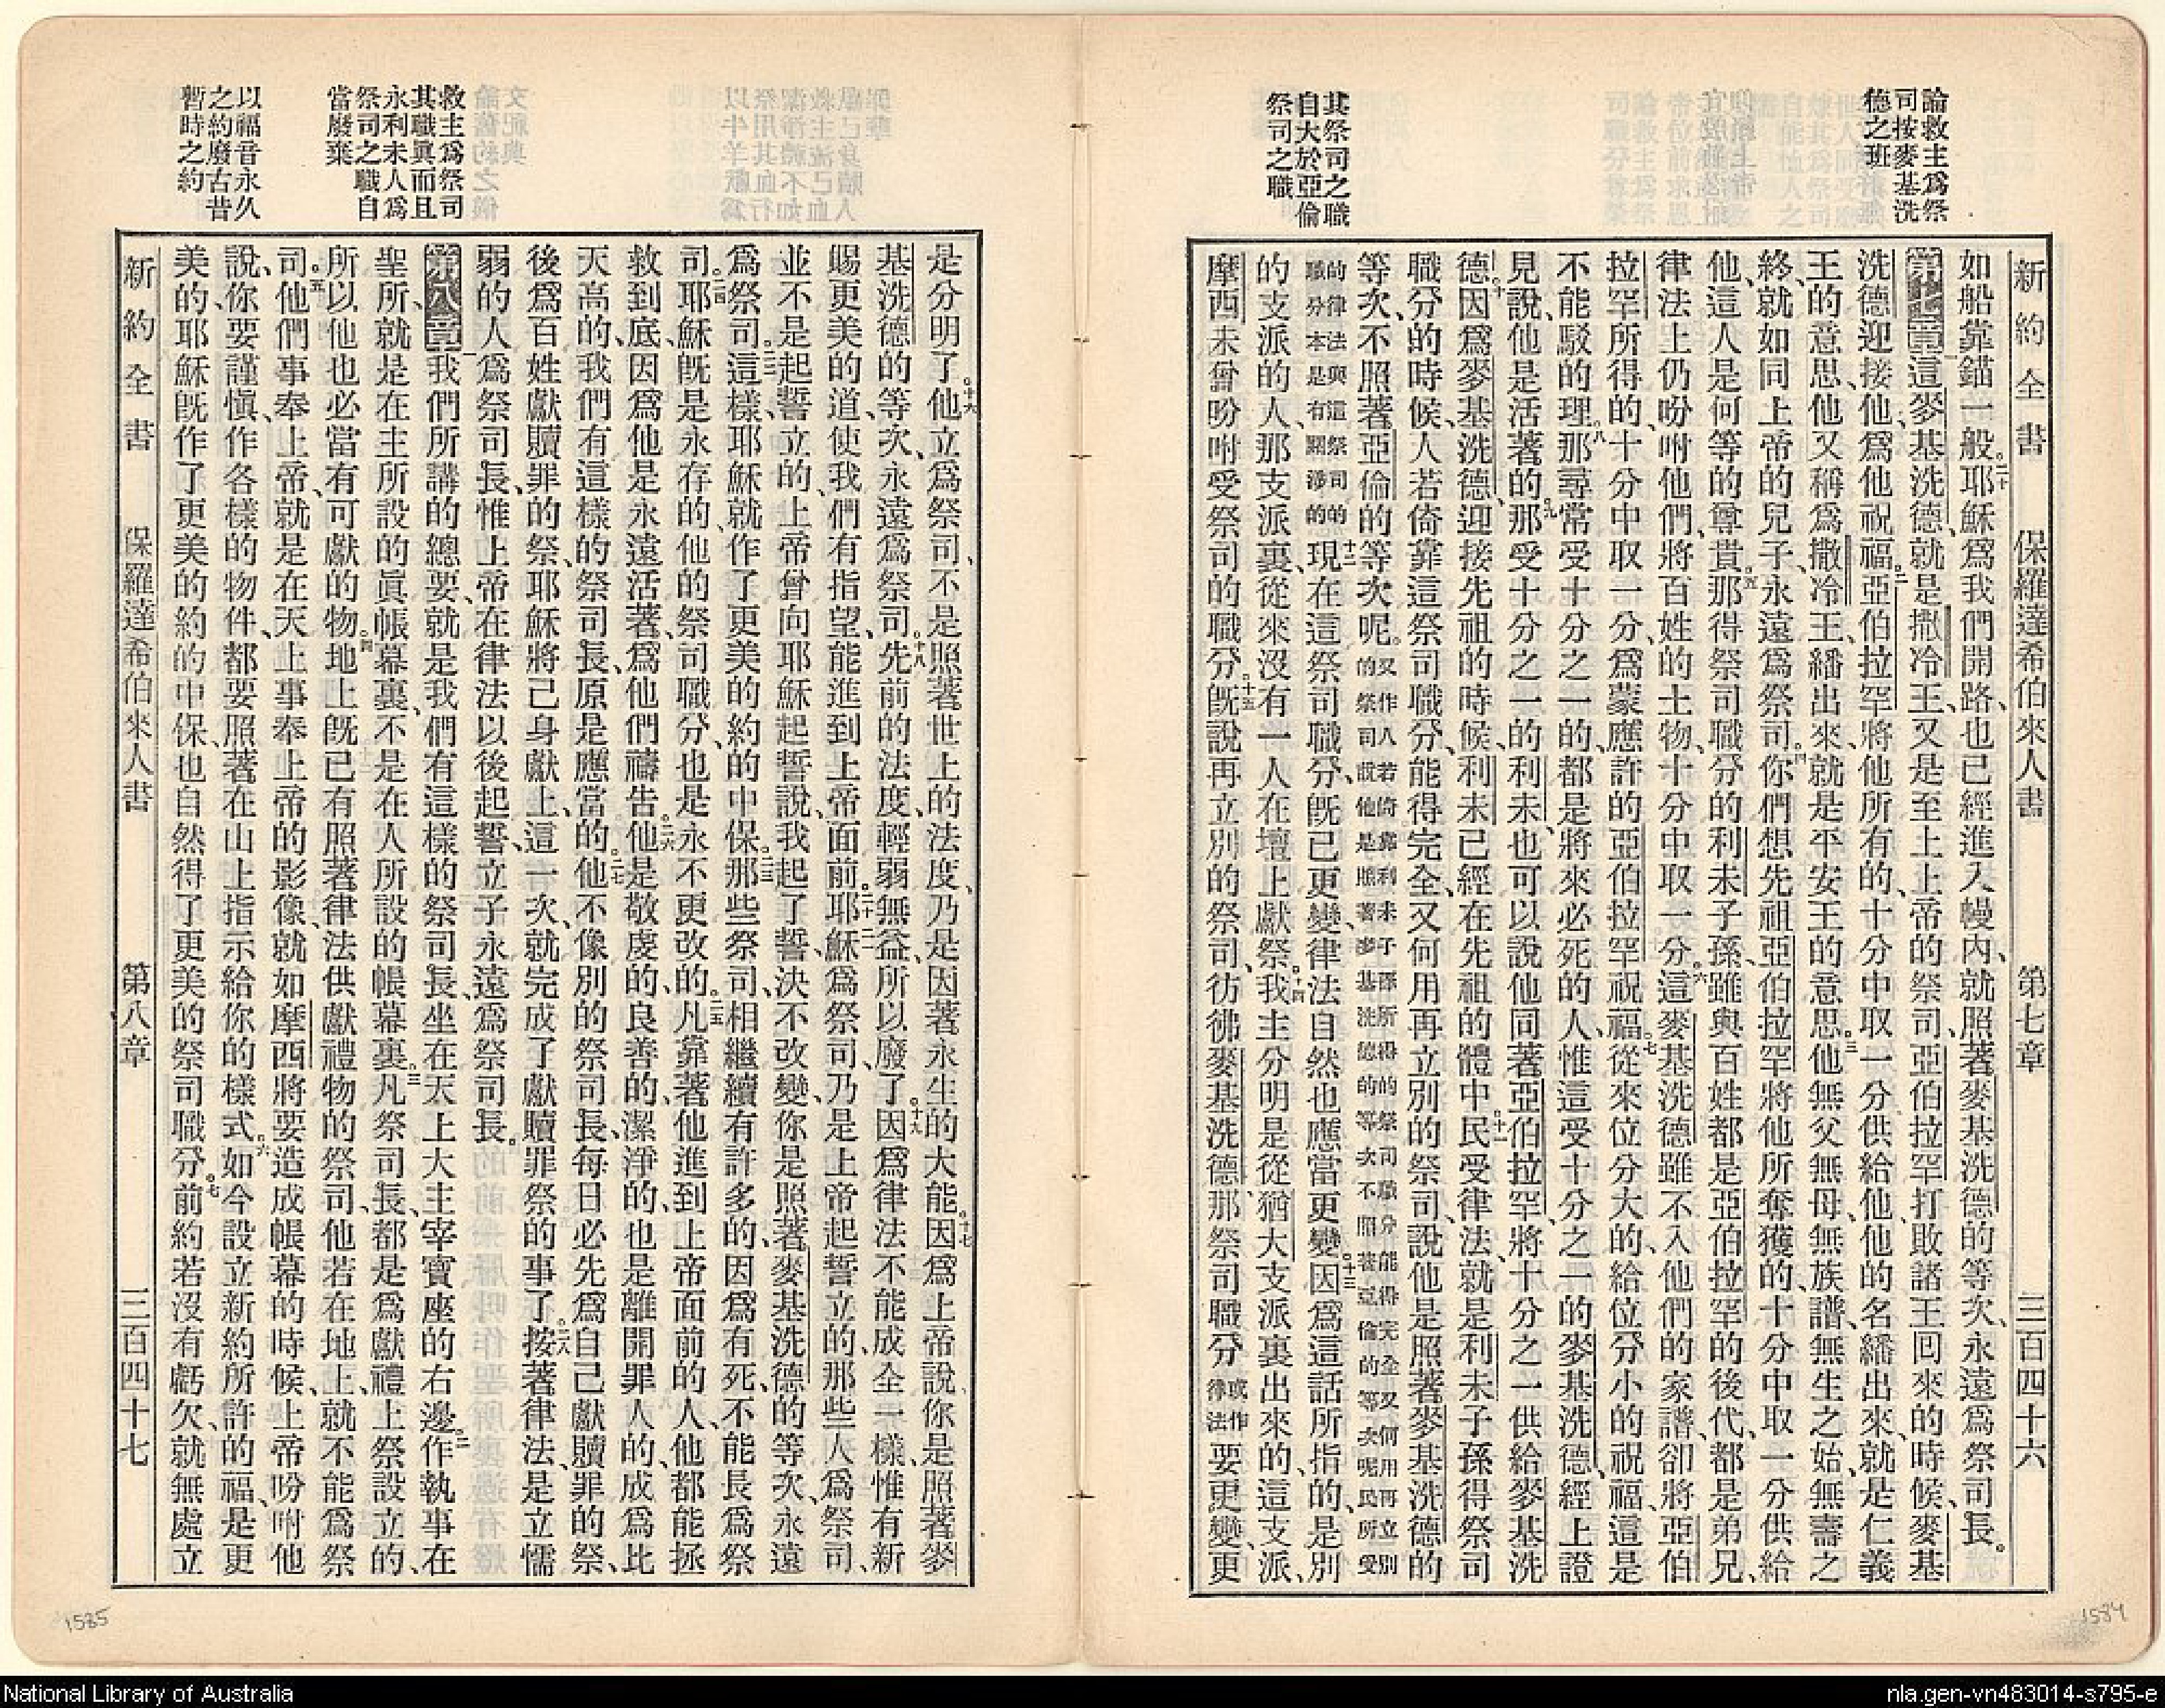 論救主爲祭
司按麥基洗
德之班
其祭司之職
自大於亞倫
祭司之職
新約全書 保羅達希伯來人書 第七章 三百四十六
如船靠錨一般。二十耶穌爲我們開路、也已經進入幔內、就照著麥基洗德的等次、永遠爲祭司長。
第七章一這麥基洗德、就是撒冷王、又是至上上帝的祭司、亞伯拉罕打敗諸王回來的時候、麥基
洗德迎接他、爲他祝福。二亞伯拉罕將他所有的、十分中取一分供給他、他的名繙出來、就是仁義
王的意思、他又稱爲撒冷王、繙出來、就是平安王的意思。三他無父無母、無族譜、無生之始、無壽之
終、就如同上帝的兒子、永遠爲祭司。四你們想先祖亞伯拉罕將他所奪獲的、十分中取一分供給
他、這人是何等的尊貴。五那得祭司職分的利未子孫、雖與百姓都是亞伯拉罕的後代、都是弟兄、
律法上仍吩咐他們、將百姓的土物、十分中取一分。六這麥基洗德雖不入他們的家譜、卻將亞伯
拉罕所得的、十分中取一分、爲蒙應許的亞伯拉罕祝福。七從來位分大的、給位分小的祝福、這是
不能駁的理。八那尋常受十分之一的、都是將來必死的人、惟這受十分之一的麥基洗德、經上證
見說、他是活著的。九那受十分之一的利未、也可以說他同著亞伯拉罕、將十分之一供給麥基洗
德。十因爲麥基洗德迎接先祖的時候、利未已經在先祖的體中。十一民受律法、就是利未子孫得祭司
職分的時候、人若倚靠這祭司職分、能得完全、又何用再立別的祭司、說他是照著麥基洗德的
等次、不照著亞倫的等次呢。又作人若倚靠利未子孫所得的祭司職分能得完全又何用再立別的祭司說他是照著麥基洗德的等次不照著亞倫的等次呢民所受
的律法與這祭司的職分本是有關涉的十二現在這祭司職分、既已更變、律法自然也應當更變。十三因爲這話所指的、是別
的支派的人、那支派裏、從來沒有一人在壇上獻祭。十四我主分明是從猶大支派裏出來的、這支派、
摩西未曾吩咐受祭司的職分。十五既說再立別的祭司、彷彿麥基洗德、那祭司職分或作律法要更變、更
救主爲祭司
其職眞而且
永利未人爲
祭司之職自
當廢棄
以福音永久
之約廢古昔
暫時之約
是分明了。十六他立爲祭司、不是照著世上的法度、乃是因著永生的大能。十七因爲上帝說、你是照著麥
基洗德的等次、永遠爲祭司。十八先前的法度、輕弱無益、所以廢了。十九因爲律法不能成全一樣、惟有新
賜更美的道、使我們有指望、能進到上帝面前。二十二耶穌爲祭司、乃是上帝起誓立的、那些人爲祭司、
並不是起誓立的、上帝曾向耶穌起誓說、我起了誓、決不改變、你是照著麥基洗德的等次、永遠
爲祭司。二二這樣、耶穌就作了更美的約的中保。二三那些祭司、相繼續有許多的、因爲有死、不能長爲祭
司。二四耶穌既是永存的、他的祭司職分、也是永不更改的。二五凡靠著他進到上帝面前的人、他都能拯
救到底、因爲他是永遠活著、爲他們禱告。二六他是敬虔的、良善的、潔淨的、也是離開罪人的、成爲比
天高的、我們有這樣的祭司長、原是應當的。二七他不像別的祭司長、每日必先爲自己獻贖罪的祭、
後爲百姓獻贖罪的祭、耶穌將己身獻上、這一次、就完成了獻贖罪祭的事了。二八按著律法、是立懦
弱的人爲祭司長、惟上帝在律法以後起誓、立子永遠爲祭司長。
第八章一我們所講的總要、就是我們有這樣的祭司長、坐在天上大主宰寶座的右邊。二作執事在
聖所、就是在主所設的眞帳幕裏、不是在人所設的帳幕裏。三凡祭司長、都是爲獻禮上祭設立的、
所以他也必當有可獻的物。四地上既已有照著律法供獻禮物的祭司、他若在地上、就不能爲祭
司。五他們事奉上帝、就是在天上事奉上帝的影像、就如摩西將要造成帳幕的時候、上帝吩咐他
說、你要謹愼、作各樣的物件、都要照著在山上指示給你的樣式。六如今設立新約、所許的福、是更
美的、耶穌既作了更美的約的中保、也自然得了更美的祭司職分。七前約若沒有虧欠、就無處立
新約全書 保羅達希伯來人書 第八章 三百四十七
1585
1584
National Library of Australia
nla.gen-vn483014-s795-e